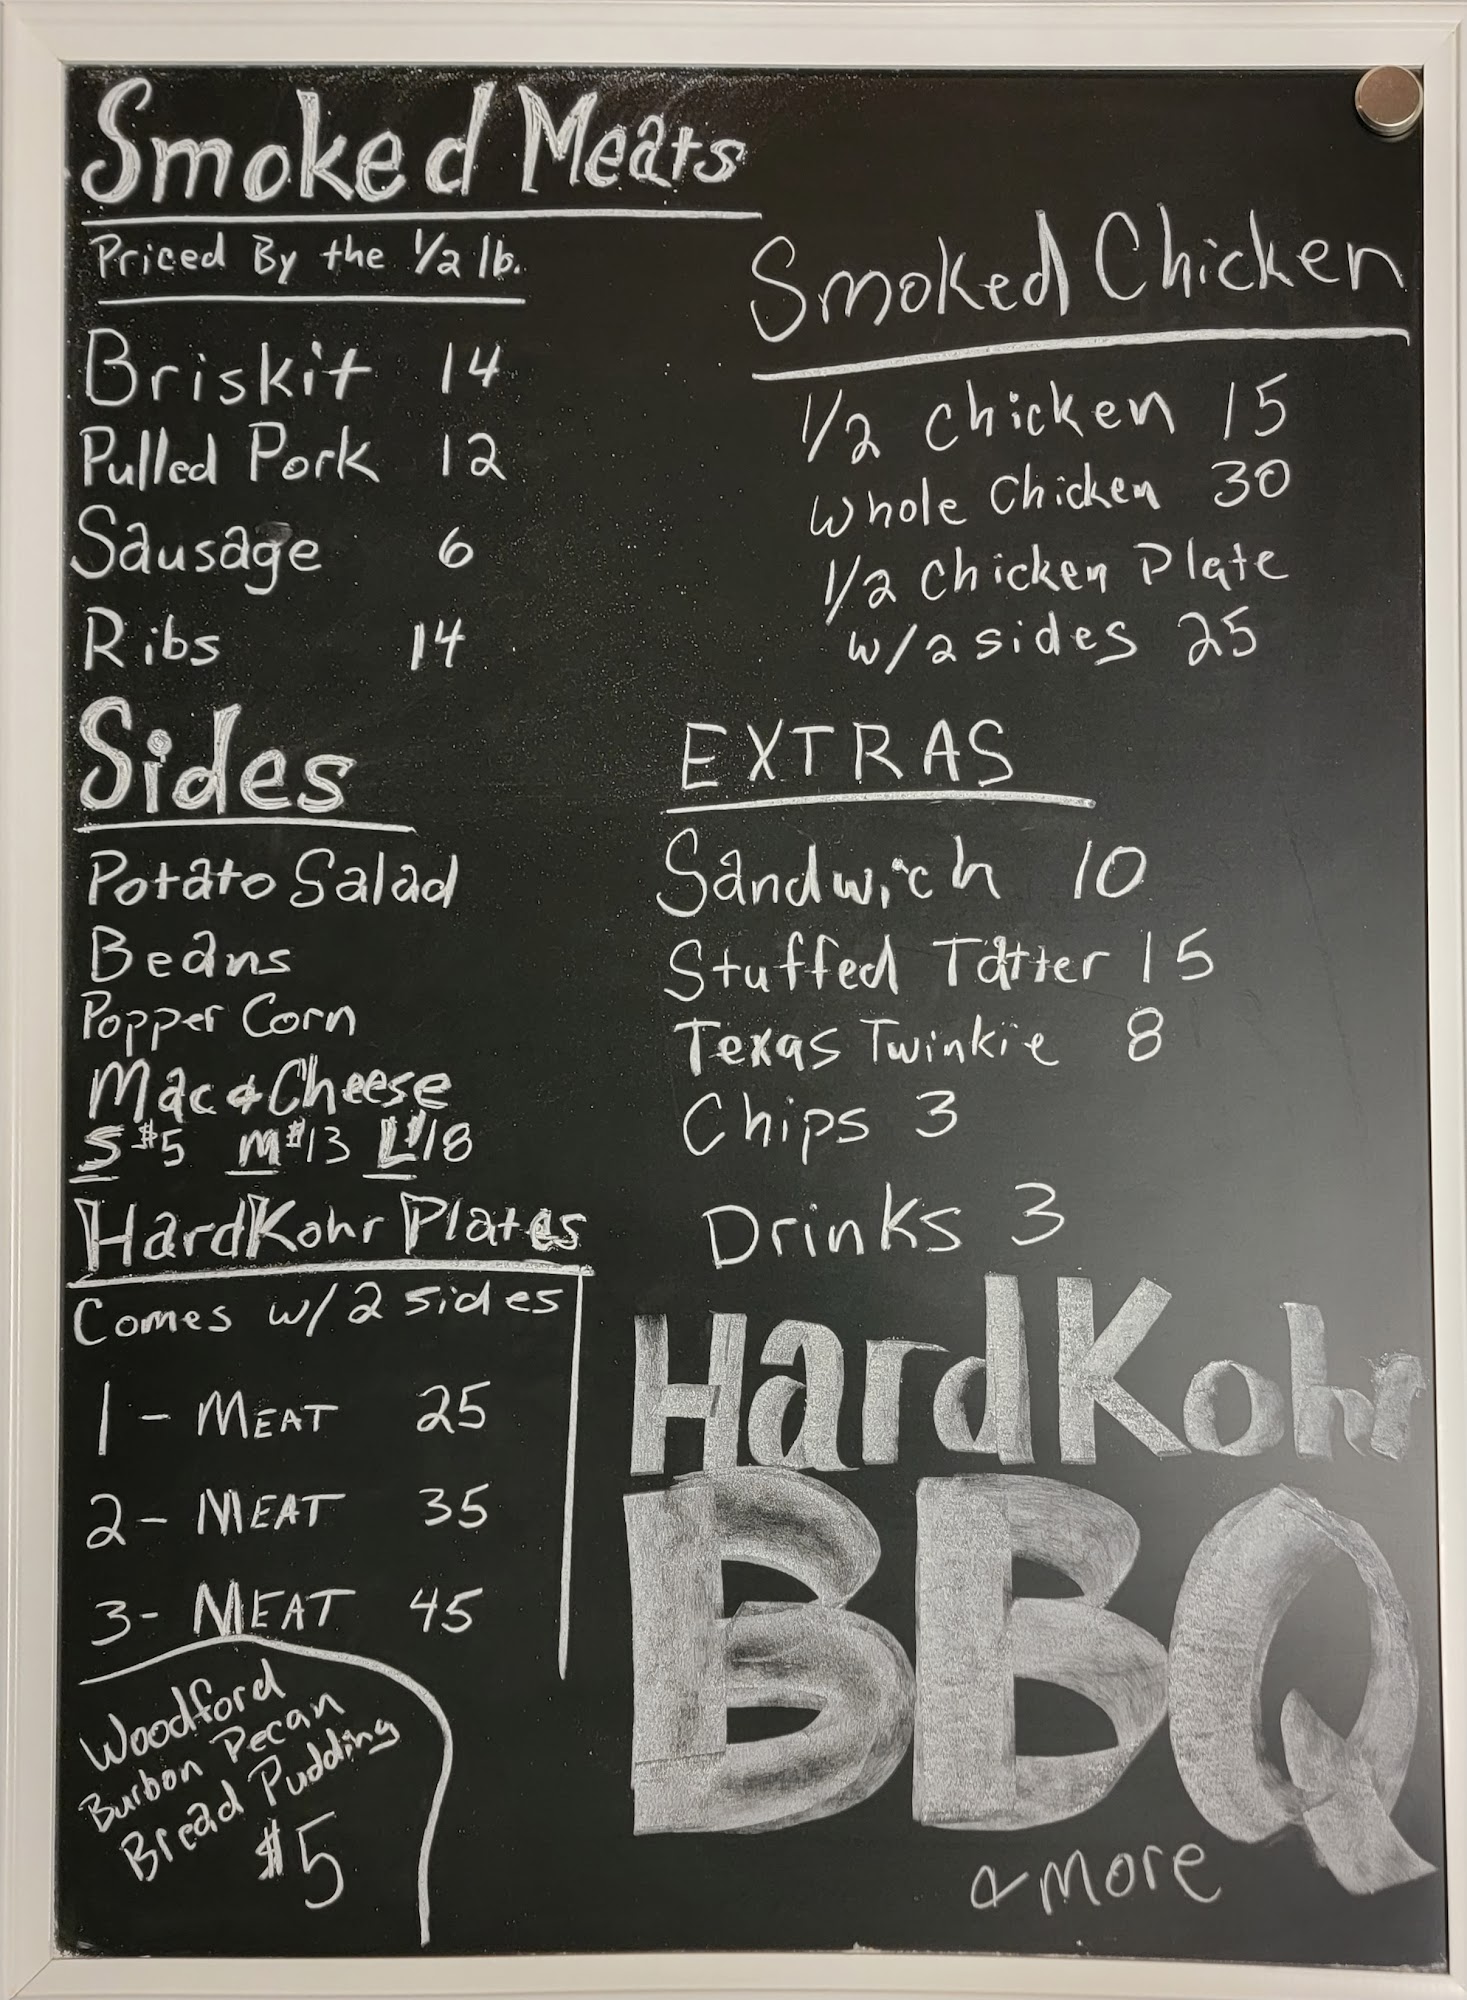 Smoked Meats
Priced By the 1/2 lb.
Briskit 14
Pulled Pork 12
Sausage 6
Ribs 14
Smoked Chicken
1/2 Chicken 15
Whole Chicken 30
1/2 Chicken Plate
w/2 sides 25
Sides
Potato Salad
Beans
Popper Corn
Mac & Cheese
S $5 M $13 L $18
EXTRAS
Sandwich 10
Stuffed Tatter 15
Texas Twinkie 8
Chips 3
Drinks 3
HardKohr Plates
Comes w/2 sides
1 - MEAT 25
2 - MEAT 35
3 - MEAT 45
Woodford
Burbon Pecan
Bread Pudding
$5
HardKohr
BBQ
& more